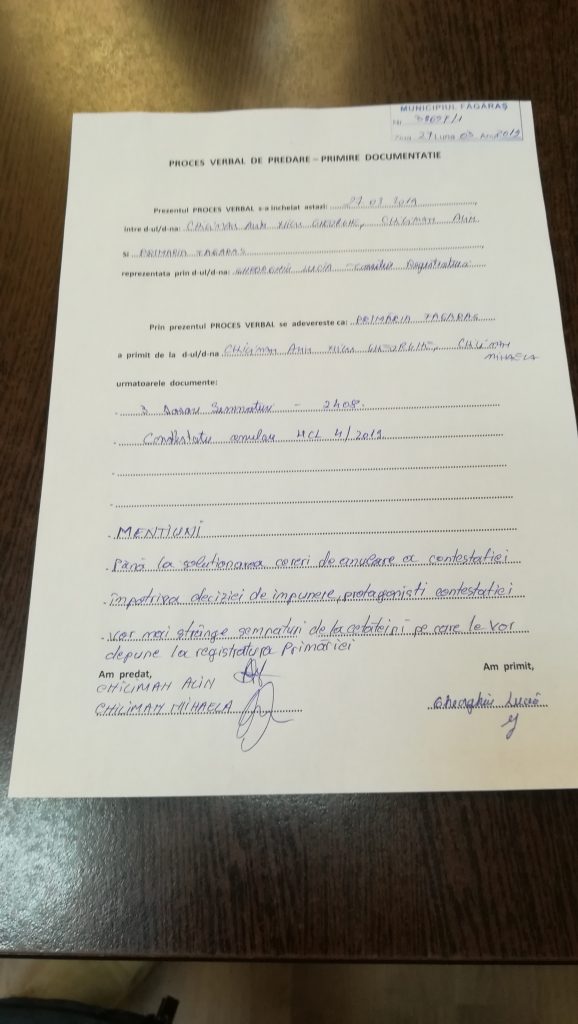 MUNICIPIUL FĂGĂRAȘ
Nr.
Ziua 27 Luna 03 Anul 2019
PROCES VERBAL DE PREDARE – PRIMIRE DOCUMENTATIE
Prezentul PROCES VERBAL s-a incheiat astazi: 27 03 2019
intre d-ul/d-na: CHILIMAN Alin NICU GHEORGHE, CHILIMAN Alin
si PRIMARIA FAGARAS
reprezentata prin d-ul/d-na: GHEORGHIU LUCIA - Consilier Registratura
Prin prezentul PROCES VERBAL se adevereste ca: PRIMĂRIA FAGARAS
a primit de la d-ul/d-na CHILIMAN Alin NICU GHEORGHE, CHILIMAN
MIHAELA
urmatoarele documente:
3 Dosare Semnaturi - 2408.
anulare HCL 4/2019.
MENTIUNI
Până la solutionarea cereri de anulare a contestatiei
împotriva deciziei de impunere, protagonisti contestatiei
vor mai strânge semnaturi de la cetăteini pe care le vor
depune la registratura Primăriei
Am predat,
Am primit,
CHILIMAN ALIN
CHILIMAN MIHAELA
Gheorghiu Lucia